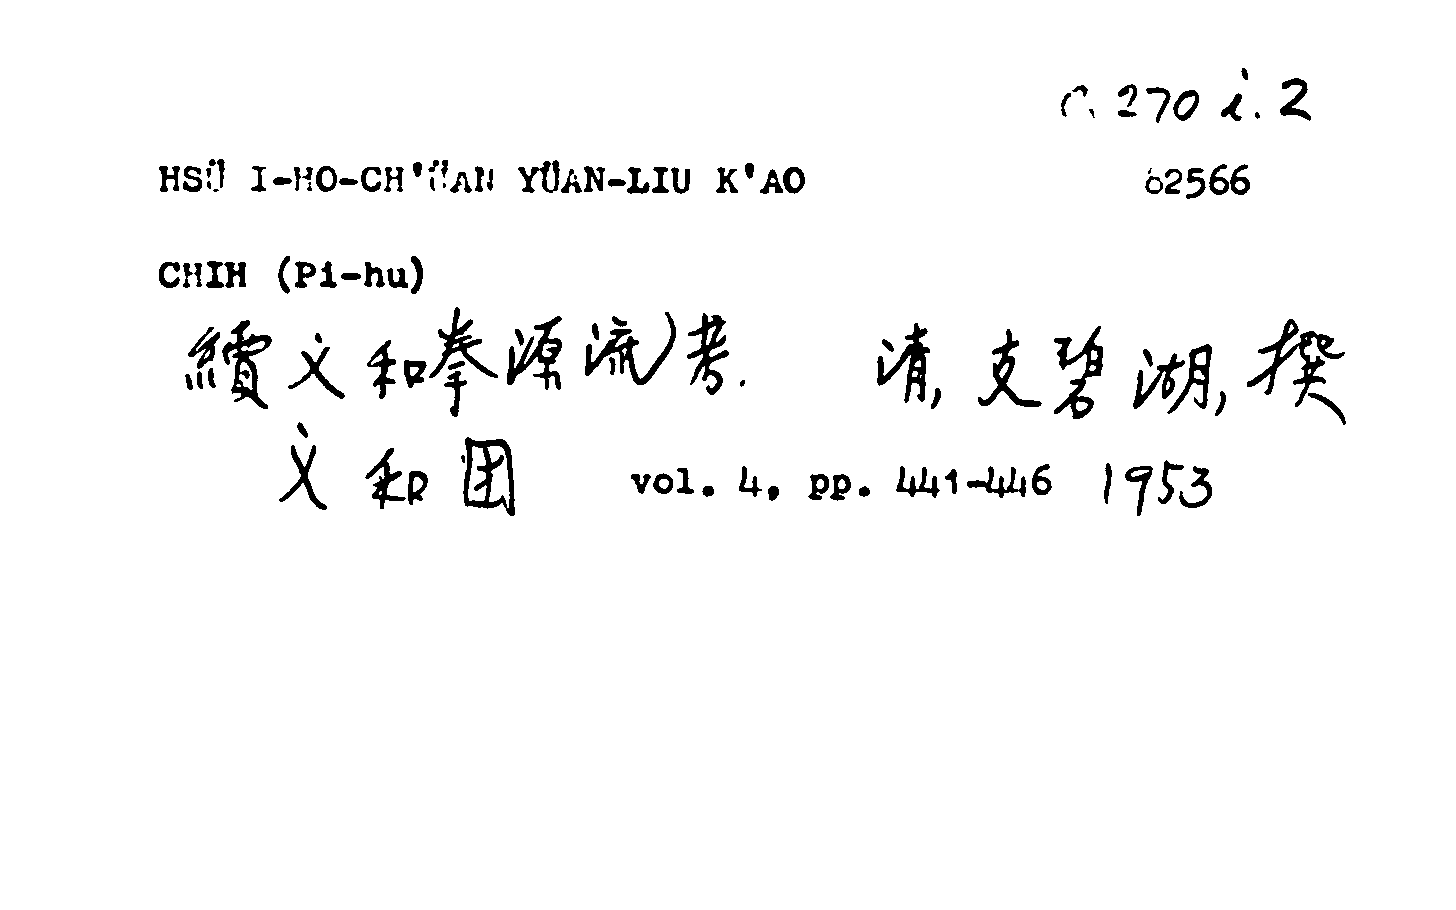 C. 270 i. 2
HSÜ I-HO-CH'ÜAN YÜAN-LIU K'AO 62566
CHIH (Pi-hu)
續义和拳源流考. 清, 支碧湖, 撰
义和团 vol. 4, pp. 441-446 1953